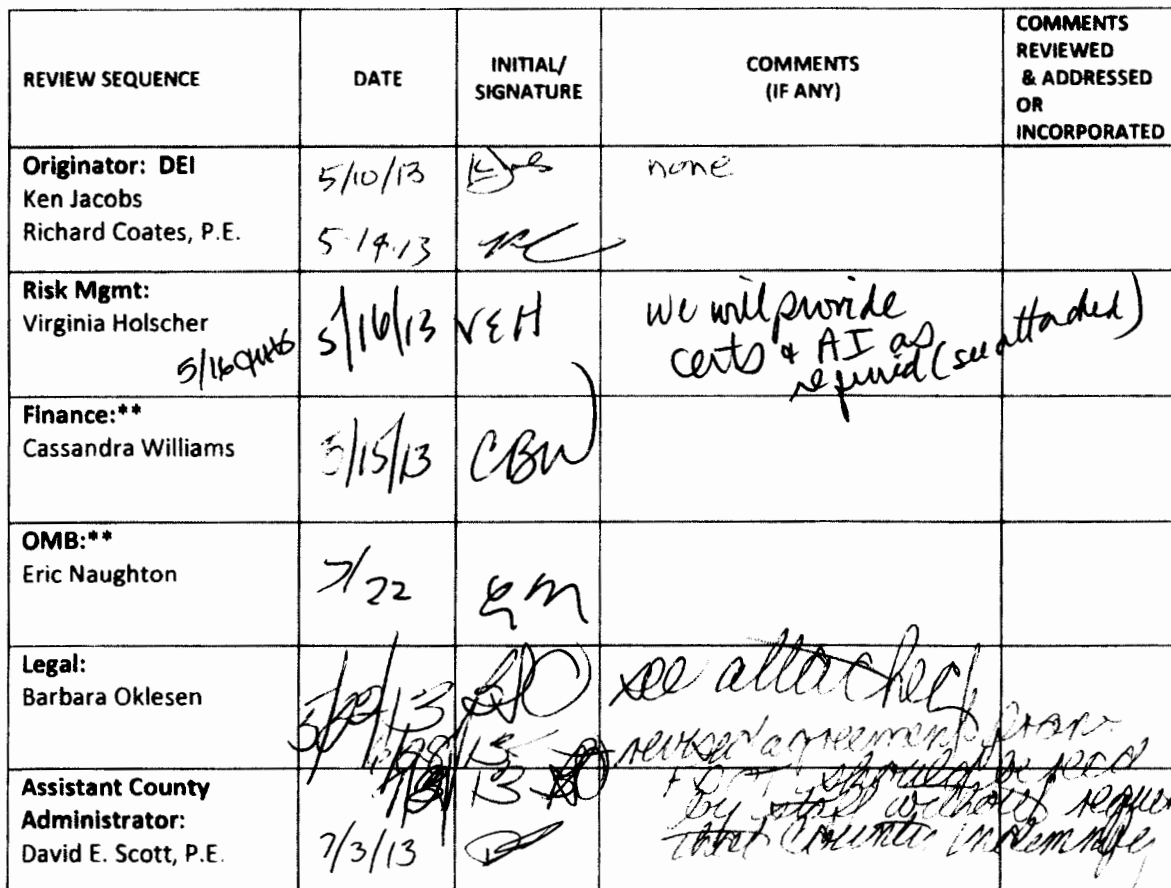 REVIEW SEQUENCE
DATE
INITIAL/
SIGNATURE
COMMENTS
(IF ANY)
COMMENTS
REVIEWED
& ADDRESSED
OR
INCORPORATED
Originator: DEI
Ken Jacobs
Richard Coates, P.E.
5/10/13
none
5.14.13
Risk Mgmt:
Virginia Holscher
5/16
5/16/13
VEH
we will provide
certs & AI as
(see attached)
Finance:**
Cassandra Williams
5/15/13
CBW
OMB:**
Eric Naughton
7/22
EM
Legal:
Barbara Oklesen
see attached
revised agreement from
should be
by state without
that County indemnify
Assistant County
Administrator:
David E. Scott, P.E.
7/3/13